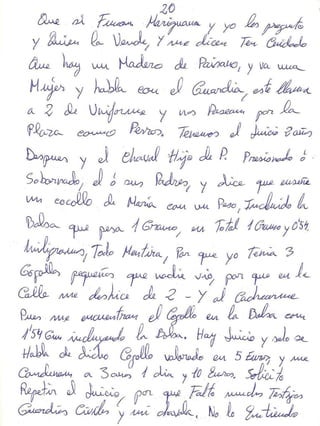 20
Que si Fuman Mariguana y yo les pregunto
y Quien la Vende, Y me dicen Ten Cuidado
Que hay un Madero de Paisano, y va una
Mujer y habla con el Guardia, este llama
a 2 de Uniforme y nos Pasean por la
Plaza como Perros. Tenemos el Juicio 2 años
Despues y el Chaval Hijo de P. Presionado ó
Sobornado, el ó sus Padres, y dice que enseñe
un cocollo de Maria con un Peso, Incluido la
Bolsa que pesa 1 Gramo, en Total 1 Gramo y 0'54
Miligramos, Todo Mentira, Por que yo Tenia 3
Gogollos pequeños que nadie vio, por que en la
Calle me deshice de 2 - Y al Cachearme
Pues me encuentran el Cogollo en la Bolsa con
1'54 Gm incluyendo la Bolsa. Hay Juicio y solo se
Habla de dicho Cogollo valorado en 5 Euros, y me
Condenan a 3 años 1 dia y 10 Euros. Solicito
Repetir el Juicio, por que Falto muchos Testigos
Guardias Civiles y mi chavala. No lo Entiendo